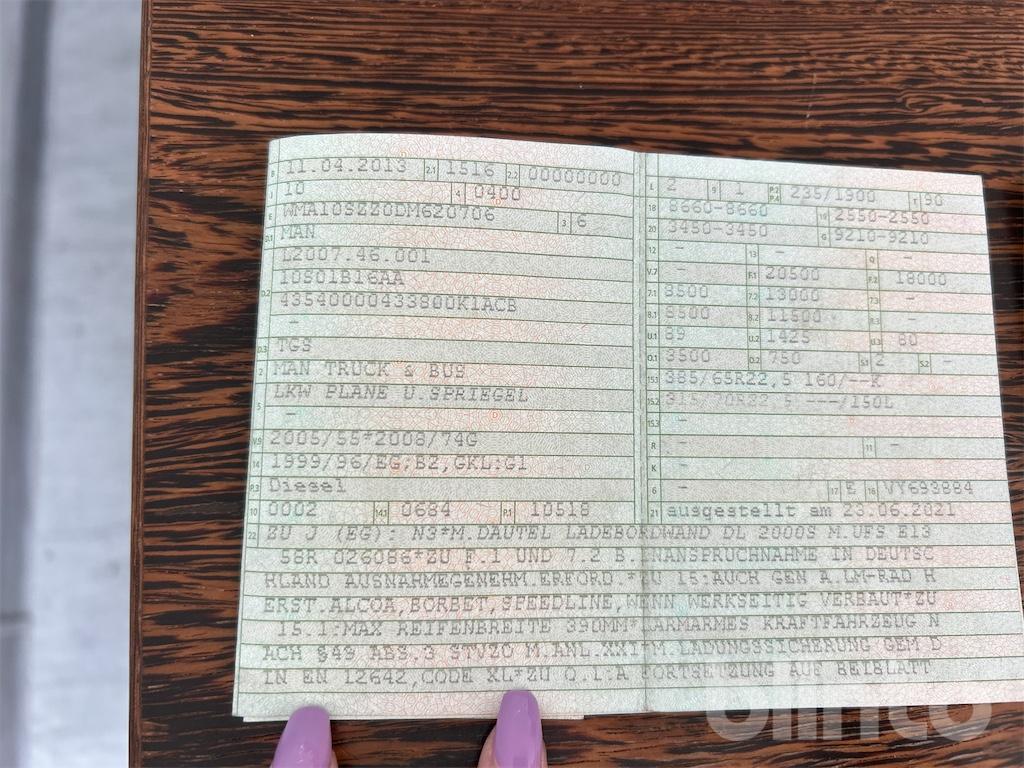 B 11.04.2013 2.1 1516 2.2 00000000
J 10 4 0400
E WMA10SZZ0DM620706 3 6
D.1 MAN
L2007.46.001
D.2 10S01B16AA
43540000433800K1ACB
–
D.3 TGS
2 MAN TRUCK & BUS
5 LKW PLANE U.SPRIEGEL
–
V.9 2005/55*2008/74G
14 1999/96/EG;B2,GKL:G1
P.3 Diesel
10 0002 14.1 0684 P.1 10518
L 2 9 1 P.2 P.4 235/1900 T 90
18 8660-8660 19 2550-2550
20 3450-3450 G 9210-9210
12 – 13 – Q –
V.7 – F.1 20500 F.2 18000
7.1 8500 7.2 13000 7.3 –
8.1 8500 8.2 11500 8.3 –
U.1 89 U.2 1425 U.3 80
O.1 3500 O.2 750 S.1 2 S.2 –
15.1 385/65R22,5 160/--K
15.2 315/70R22,5 ---/150L
15.3 –
R – 11 –
K –
6 – 17 E 16 VY693884
21 ausgestellt am 23.06.2021
22 ZU J (EG): N3*M.DAUTEL LADEBORDWAND DL 2000S M.UFS E13
58R 026086*ZU F.1 UND 7.2 B. NANSPRUCHNAHME IN DEUTSC
HLAND AUSNAHMEGENEHM.ERFORD.*ZU 15:AUCH GEN A.LM-RAD H
ERST.ALCOA,BORBET,SPEEDLINE,WENN WERKSEITIG VERBAUT*ZU
15.1:MAX REIFENBREITE 390MM* ARMARMES KRAFTFAHRZEUG N
ACH §49 ABS.3 STVZO M.ANL.XXI*M.LADUNGSSICHERUNG GEM D
IN EN 12642,CODE XL*ZU Q.1:A ORTSETZUNG AUF BEIBLATT
olinco